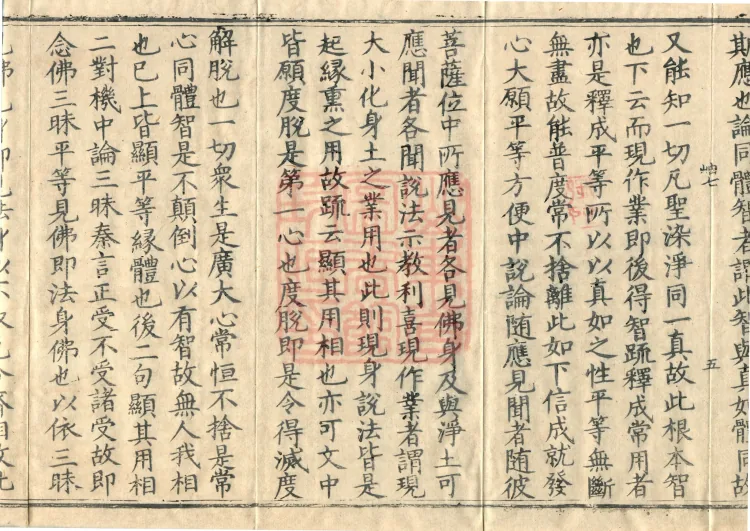 其應也論同體智者謂此智與真如體同故
五
又能知一切凡聖染淨同一真故此根本智
也下云而現作業即後得智䟽釋成常用者
亦是釋成平等所以以真如之性平等無斷
無盡故能普度常不捨離此如下信成就發
心大願平等方便中說論随應見聞者随彼
菩薩位中所應見者各見佛身及與淨土可
應聞者各聞說法示教利喜現作業者謂現
大小化身土之業用也此則現身說法皆是
起緣熏之用故䟽云顯其用相也亦可文中
皆願度脫是第一心也度脫即是令得滅度
解脫也一切衆生是廣大心常恒不捨是常
心同體智是不顛倒心以有智故無人我相
也已上皆顯平等緣體也後二句顯其用相
二對機中論三昧秦言正受不受諸受故即
念佛三昧平等見佛即法身佛也以依三昧